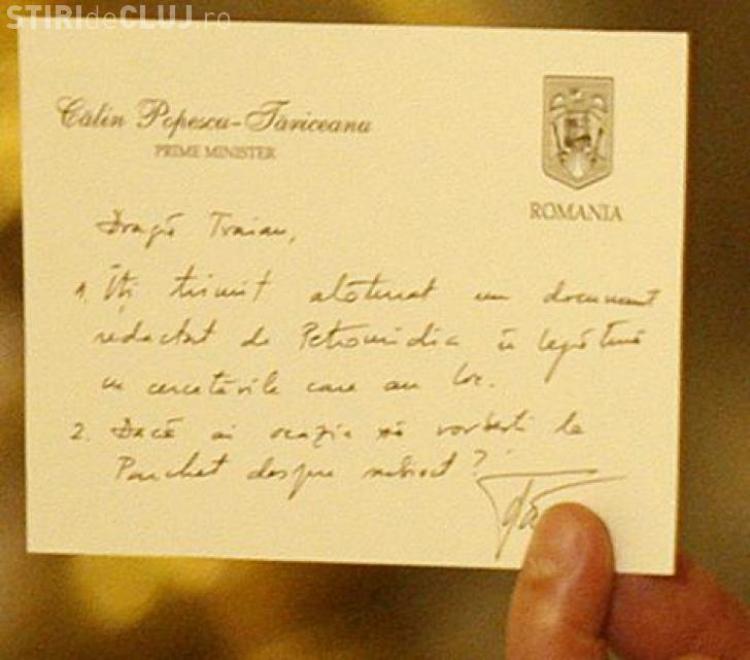 STIRIdeCLUJ.ro
Călin Popescu-Tăriceanu
PRIME MINISTER
ROMANIA
Dragă Traian,
1. Îți trimit alăturat un document
redactat de Petromidia în legătură
cu cercetările care au loc.
2. Dacă ai ocazia să vorbești la
Parchet despre subiect?